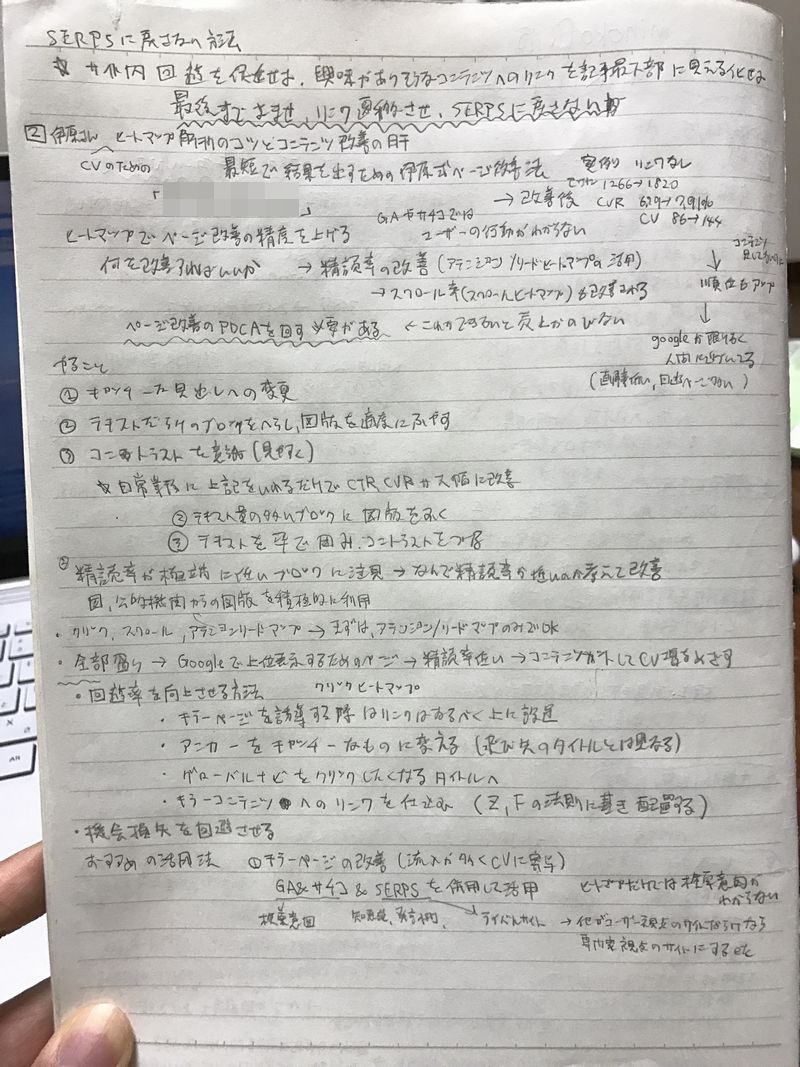 SERPSに戻さない方法
☆ サイト内回遊を促せよ、興味がありそうなコンテンツへのリンクを記事最下部に見える化せよ
最後まで読ませ、リンク遷移させ、SERPSに戻さない
2 伊原さん ヒートマップ解析のコツとコンテンツ改善の肝
CVのための 最短で結果を出すための伊原式ページ改善法 実例 リンクなし
「 」 → 改善後 1266→1820
CVR 6.79→7.91%
CV 86→144
ヒートマップでページ改善の精度を上げる GAやサチコでは ユーザーの行動がわからない
何を改善すればいいか → 精読率の改善(アテンション/リードヒートマップの活用) ↓ 順位もアップ
→ スクロール率(スクロールヒートマップ)も改善される ↓
ページ改善のPDCAを回す必要がある ← これができないと売上がのびない
googleが限りなく
人間に近づいてる
(直帰低い、回遊
やること
① キャッチーな見出しへの変更
② テキストだらけのブロックをへらし、図版を適度にふやす
③ コントラストを意識(見やすく)
☆ 日常業務に上記をいれるだけでCTR CVRが大幅に改善
② テキスト量の多いブロックに図版をおく
③ テキストを枠で囲み、コントラストをつける
精読率が極端に低いブロックに注目 → なんで精読率が低いのか考えて改善
国、公的機関からの図版を積極的に利用
・クリック、スクロール、アテンションリードマップ → まずは、アテンション/リードマップのみでOK
・全部盛り → Googleで上位表示するためのページ → 精読率低い → コンテンツカットしてCV増をめざす
・回遊率を向上させる方法 クリックヒートマップ
・キラーページを誘導する際はリンクはなるべく上に設置
・アンカーをキャッチーなものに変える(飛び先のタイトルとは異なる)
・グローバルナビをクリックしたくなるタイトルへ
・キラーコンテンツへのリンクを仕込む (Z, Fの法則に基き配置する)
・機会損失を回避させる
おすすめの活用法 ① キラーページの改善(流入が多くCVに寄与)
GA&サチコ&SERPSを併用して活用 ヒートマップだけでは検索意図が
わからない
検索意図 ライバルサイト → 他がユーザー視点のサイトだらけなら
専門家視点のサイトにするetc